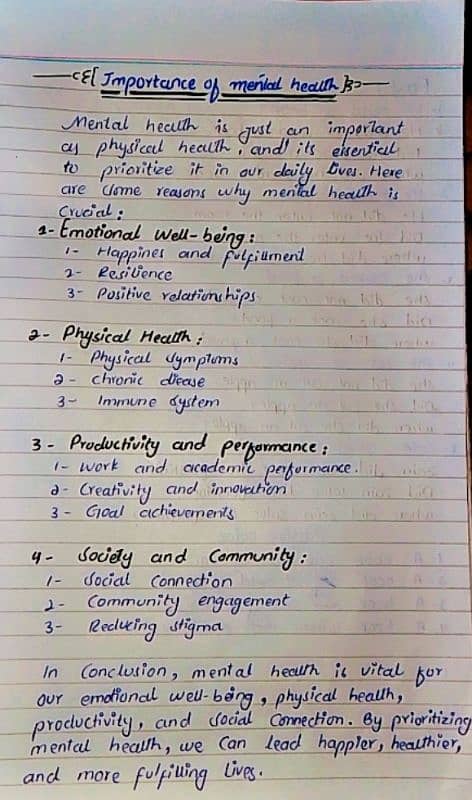 Importance of mental health
Mental health is just an important
as physical health, and its essential
to prioritize it in our daily lives. Here
are some reasons why mental health is
Crucial:
1- Emotional Well-being:
1- Happines and fulfillment
2- Resilience
3- Positive relationships
2- Physical Health:
1- Physical Symptoms
2- chronic diease
3- Immune System
3- Productivity and performance:
1- Work and academic performance.
2- Creativity and innovation
3- Goal achievements
4- Society and Community:
1- Social Connection
2- Community engagement
3- Reducing stigma
In Conclusion, mental health is vital for
our emotional well-being, physical health,
productivity, and social Connection. By prioritizing
mental health, we Can lead happier, healthier,
and more fulfilling Lives.